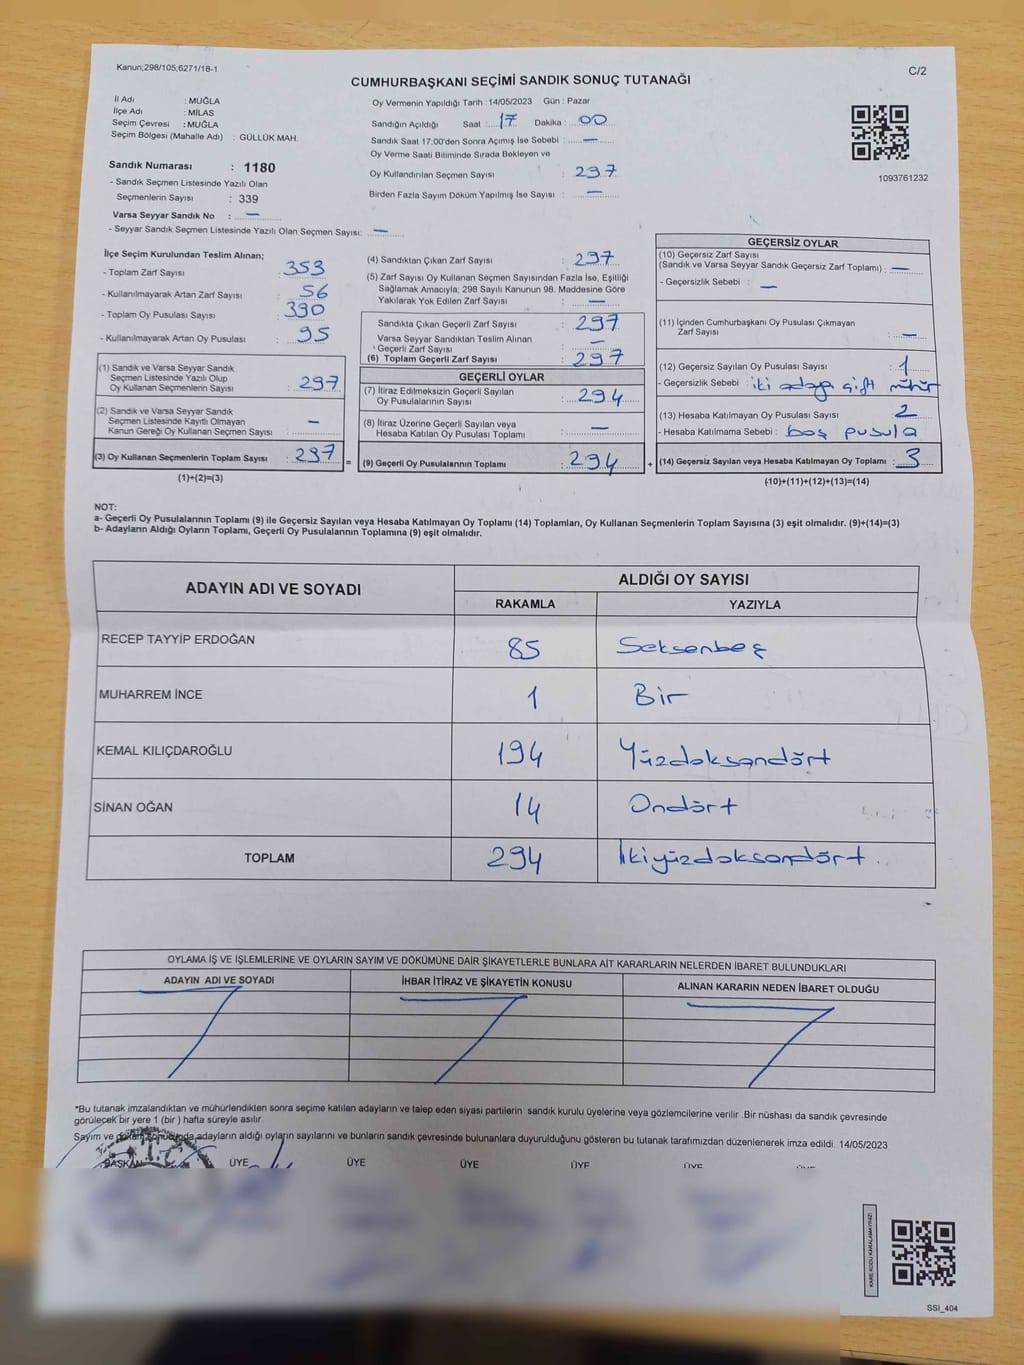 Kanun;298/105,6271/18-1
C/2
CUMHURBAŞKANI SEÇİMİ SANDIK SONUÇ TUTANAĞI
İl Adı : MUĞLA
İlçe Adı : MİLAS
Seçim Çevresi : MUĞLA
Seçim Bölgesi (Mahalle Adı) : GÜLLÜK MAH.
Sandık Numarası : 1180
- Sandık Seçmen Listesinde Yazılı Olan
Seçmenlerin Sayısı : 339
Varsa Seyyar Sandık No : —
- Seyyar Sandık Seçmen Listesinde Yazılı Olan Seçmen Sayısı: —
Oy Vermenin Yapıldığı Tarih : 14/05/2023 Gün : Pazar
Sandığın Açıldığı Saat : 17 Dakika : 00
Sandık Saat 17:00'den Sonra Açımış İse Sebebi : —
Oy Verme Saati Bitiminde Sırada Bekleyen ve
Oy Kullandırılan Seçmen Sayısı : 297
Birden Fazla Sayım Döküm Yapılmış İse Sayısı : —
1093761232
İlçe Seçim Kurulundan Teslim Alınan;
- Toplam Zarf Sayısı : 353
- Kullanılmayarak Artan Zarf Sayısı : 56
- Toplam Oy Pusulası Sayısı : 390
- Kullanılmayarak Artan Oy Pusulası : 95
(1) Sandık ve Varsa Seyyar Sandık
Seçmen Listesinde Yazılı Olup
Oy Kullanan Seçmenlerin Sayısı : 297
(2) Sandık ve Varsa Seyyar Sandık
Seçmen Listesinde Kayıtlı Olmayan
Kanun Gereği Oy Kullanan Seçmen Sayısı : —
(3) Oy Kullanan Seçmenlerin Toplam Sayısı : 297
(1)+(2)=(3)
(4) Sandıktan Çıkan Zarf Sayısı : 297
(5) Zarf Sayısı Oy Kullanan Seçmen Sayısından Fazla İse, Eşitliği
Sağlamak Amacıyla; 298 Sayılı Kanunun 98. Maddesine Göre
Yakılarak Yok Edilen Zarf Sayısı : —
Sandıkta Çıkan Geçerli Zarf Sayısı : 297
Varsa Seyyar Sandıktan Teslim Alınan
Geçerli Zarf Sayısı : —
(6) Toplam Geçerli Zarf Sayısı : 297
GEÇERLİ OYLAR
(7) İtiraz Edilmeksizin Geçerli Sayılan
Oy Pusulalarının Sayısı : 294
(8) İtiraz Üzerine Geçerli Sayılan veya
Hesaba Katılan Oy Pusulaları Toplamı : —
= (9) Geçerli Oy Pusulalarının Toplamı : 294
GEÇERSİZ OYLAR
(10) Geçersiz Zarf Sayısı
(Sandık ve Varsa Seyyar Sandık Geçersiz Zarf Toplamı) : —
- Geçersizlik Sebebi : —
(11) İçinden Cumhurbaşkanı Oy Pusulası Çıkmayan
Zarf Sayısı : —
(12) Geçersiz Sayılan Oy Pusulası Sayısı : 1
- Geçersizlik Sebebi : iki adaya çift mühür
(13) Hesaba Katılmayan Oy Pusulası Sayısı : 2
- Hesaba Katılmama Sebebi : boş pusula
+ (14) Geçersiz Sayılan veya Hesaba Katılmayan Oy Toplamı : 3
(10)+(11)+(12)+(13)=(14)
NOT:
a- Geçerli Oy Pusulalarının Toplamı (9) ile Geçersiz Sayılan veya Hesaba Katılmayan Oy Toplamı (14) Toplamları, Oy Kullanan Seçmenlerin Toplam Sayısına (3) eşit olmalıdır. (9)+(14)=(3)
b- Adayların Aldığı Oyların Toplamı, Geçerli Oy Pusulalarının Toplamına (9) eşit olmalıdır.
ADAYIN ADI VE SOYADI
ALDIĞI OY SAYISI
RAKAMLA YAZIYLA
RECEP TAYYİP ERDOĞAN 85 Seksenbeş
MUHARREM İNCE 1 Bir
KEMAL KILIÇDAROĞLU 194 Yüzdoksandört
SİNAN OĞAN 14 Ondört
TOPLAM 294 İkiyüzdoksandört
OYLAMA İŞ VE İŞLEMLERİNE VE OYLARIN SAYIM VE DÖKÜMÜNE DAİR ŞİKAYETLERLE BUNLARA AİT KARARLARIN NELERDEN İBARET BULUNDUKLARI
ADAYIN ADI VE SOYADI İHBAR İTİRAZ VE ŞİKAYETİN KONUSU ALINAN KARARIN NEDEN İBARET OLDUĞU
*Bu tutanak imzalandıktan ve mühürlendikten sonra seçime katılan adayların ve talep eden siyasi partilerin sandık kurulu üyelerine veya gözlemcilerine verilir .Bir nüshası da sandık çevresinde
görülecek bir yere 1 (bir ) hafta süreyle asılır.
Sayım ve döküm sonucunda adayların aldığı oyların sayılarını ve bunların sandık çevresinde bulunanlara duyurulduğunu gösteren bu tutanak tarafımızdan düzenlenerek imza edildi. 14/05/2023
BAŞKAN ÜYE ÜYE ÜYE ÜYE ÜYE
T.C.
KARE KODU KARALAMAYINIZ!
SSI_404